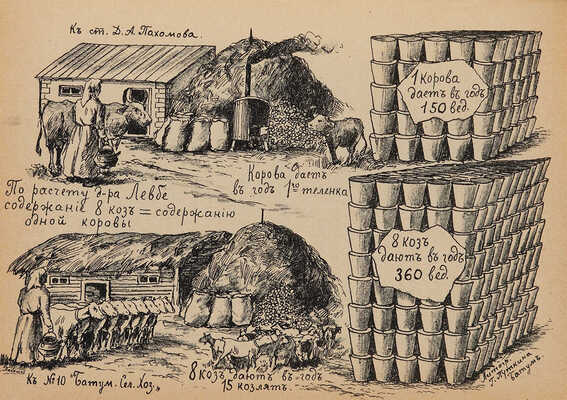 Къ ст. Д. А. Пахомова.
1 Корова
даетъ въ годъ
150 вед.
Корова даетъ
въ годъ 1го теленка
По расчету д-ра Левбе
содержанiе 8 козъ = содержанiю
одной коровы
8 козъ
даютъ въ годъ
360 вед.
Къ №10 "Батум. Сел. Хоз."
8 козъ даютъ въ годъ
15 козлятъ.
Г. Пушкина
Батумъ.